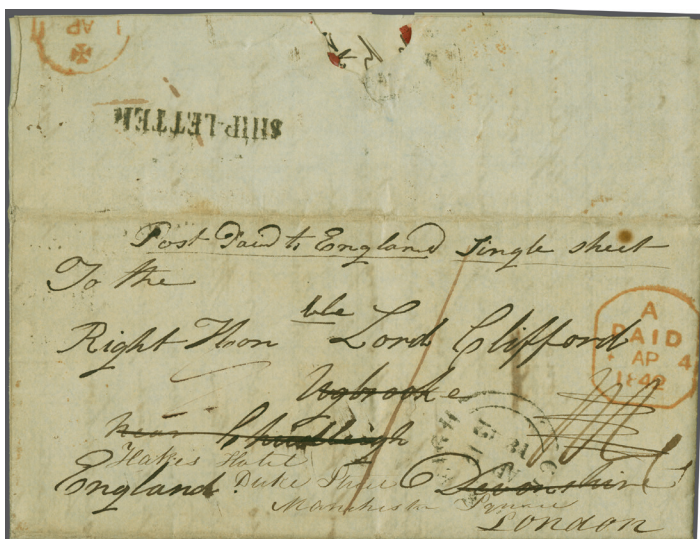 1
AP
SHIP-LETTER
Post Paid to England Single sheet
To the
Right Honble Lord Clifford
A
PAID
AP 4
1842
Ugbrooke
near Chudleigh
Hakes Hotel
England Duke Street Devonshire
Manchester Square
London